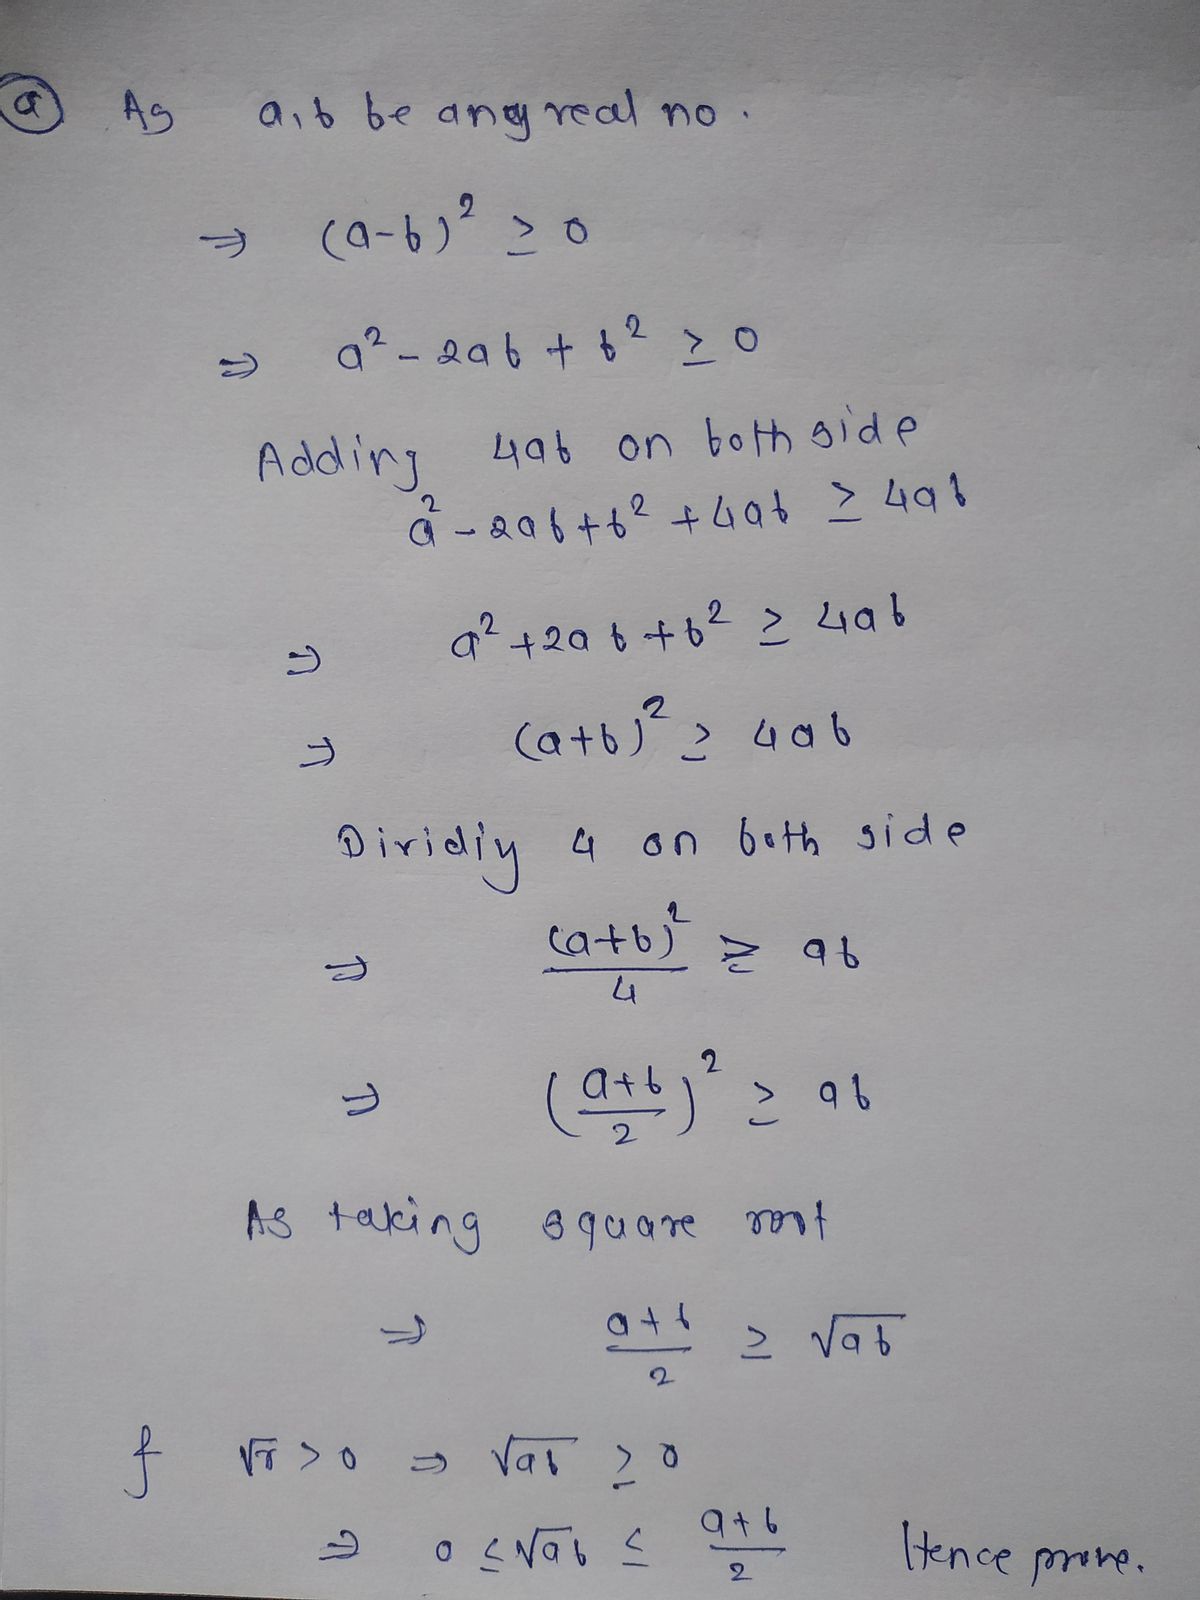 a As a, b be any real no.
⇒ (a-b)² ≥ 0
⇒ a² - 2ab + b² ≥ 0
Adding 4ab on both side
a² - 2ab + b² + 4ab ≥ 4ab
⇒ a² + 2ab + b² ≥ 4ab
⇒ (a+b)² ≥ 4ab
Dividiy 4 on both side
⇒ (a+b)²/4 ≥ ab
⇒ ((a+b)/2)² ≥ ab
As taking square root
⇒ (a+b)/2 ≥ √ab
f √x > 0 ⇒ √ab ≥ 0
⇒ 0 ≤ √ab ≤ (a+b)/2 Hence prove.